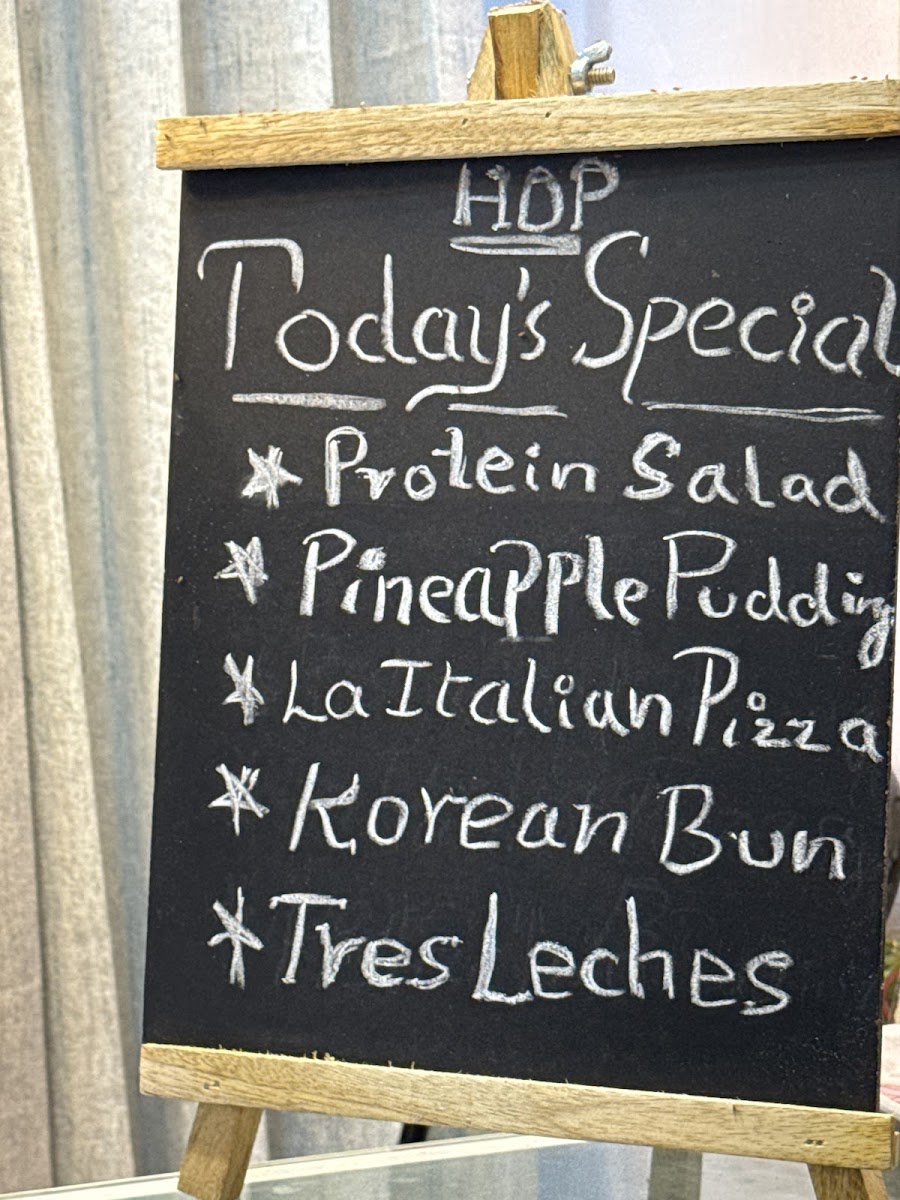 HOP
Today's Special
Protein Salad
Pineapple Pudding
La Italian Pizza
Korean Bun
Tres Leches